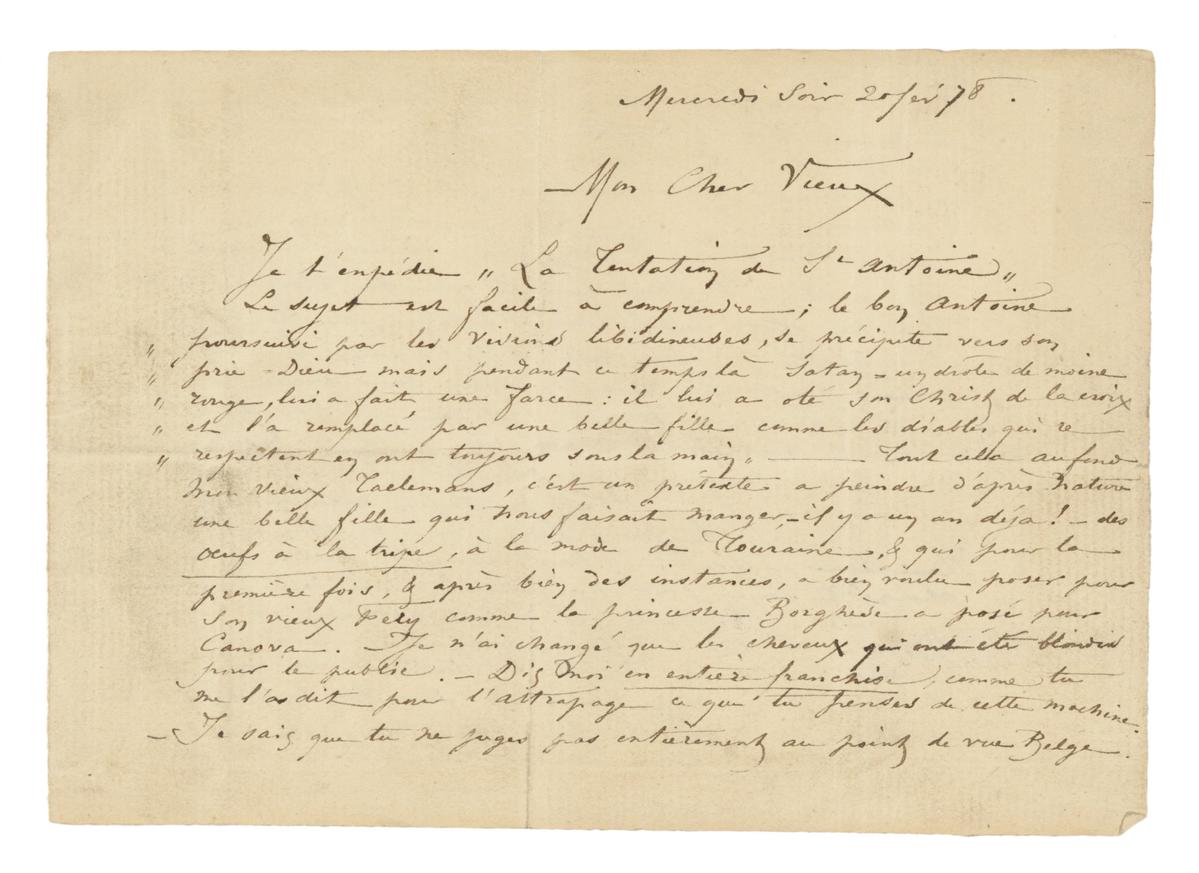 Mercredi Soir 20 fév 78.
Mon Cher Vieux
Je t'expédie „ La Tentation de St Antoine „
Le sujet est facile à comprendre ; le bon Antoine
„ poursuivi par les visions libidineuses, se précipite vers son
„ prie-Dieu mais pendant ce temps là Satan – un drôle de moine
„ rouge, lui a fait une farce : il lui a oté son Christ de la croix
„ et l'a remplacé par une belle fille comme les diables qui se
„ respectent en ont toujours sous la main „ — Tout cella au fond
mon vieux Taelemans, c'est un prétexte a peindre d'après Nature
une belle fille qui nous faisait manger, – il y a un an déja ! – des
œufs à la tripe, à la mode de Touraine, & qui pour la
première fois, & après bien des instances, a bien voulu poser pour
son vieux Fély comme la princesse Borghèse a posé pour
Canova. – Je n'ai changé que les cheveux qui ont été blondis
pour le public. – Dis moi en entière franchise, comme tu
me l'as dit pour l'attrapage ce que tu penses de cette machine.
– Je sais que tu ne juges pas entièrement au point de vue Belge.